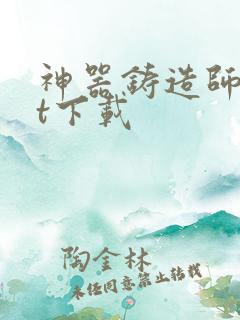 神器鋳造師
t下載
陶金林
未经同意禁止转载